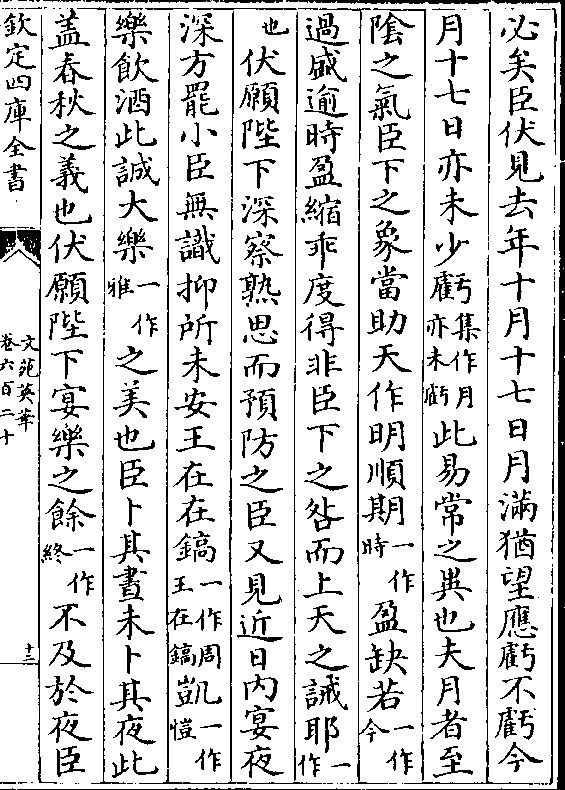 必矣臣伏見去年十月十七日月滿猶望應虧不虧今
月十七日亦未少虧集作月亦未虧此易常之異也夫月者至
陰之氣臣下之象當助天作明順期一作時盈缺若一作今
過盛逾時盈縮乖度得非臣下之咎而上天之誡耶一作
也伏願陛下深察熟思而預防之臣又見近日內宴夜
深方罷小臣無識抑所未安王在在鎬一作周王在鎬豈一作愷
樂飲酒此誠大樂一作雅之美也臣卜其晝未卜其夜此
盖春秋之義也伏願陛下宴樂之餘一作終不及於夜臣
欽定四庫全書
文苑英華
卷六百二十
十三